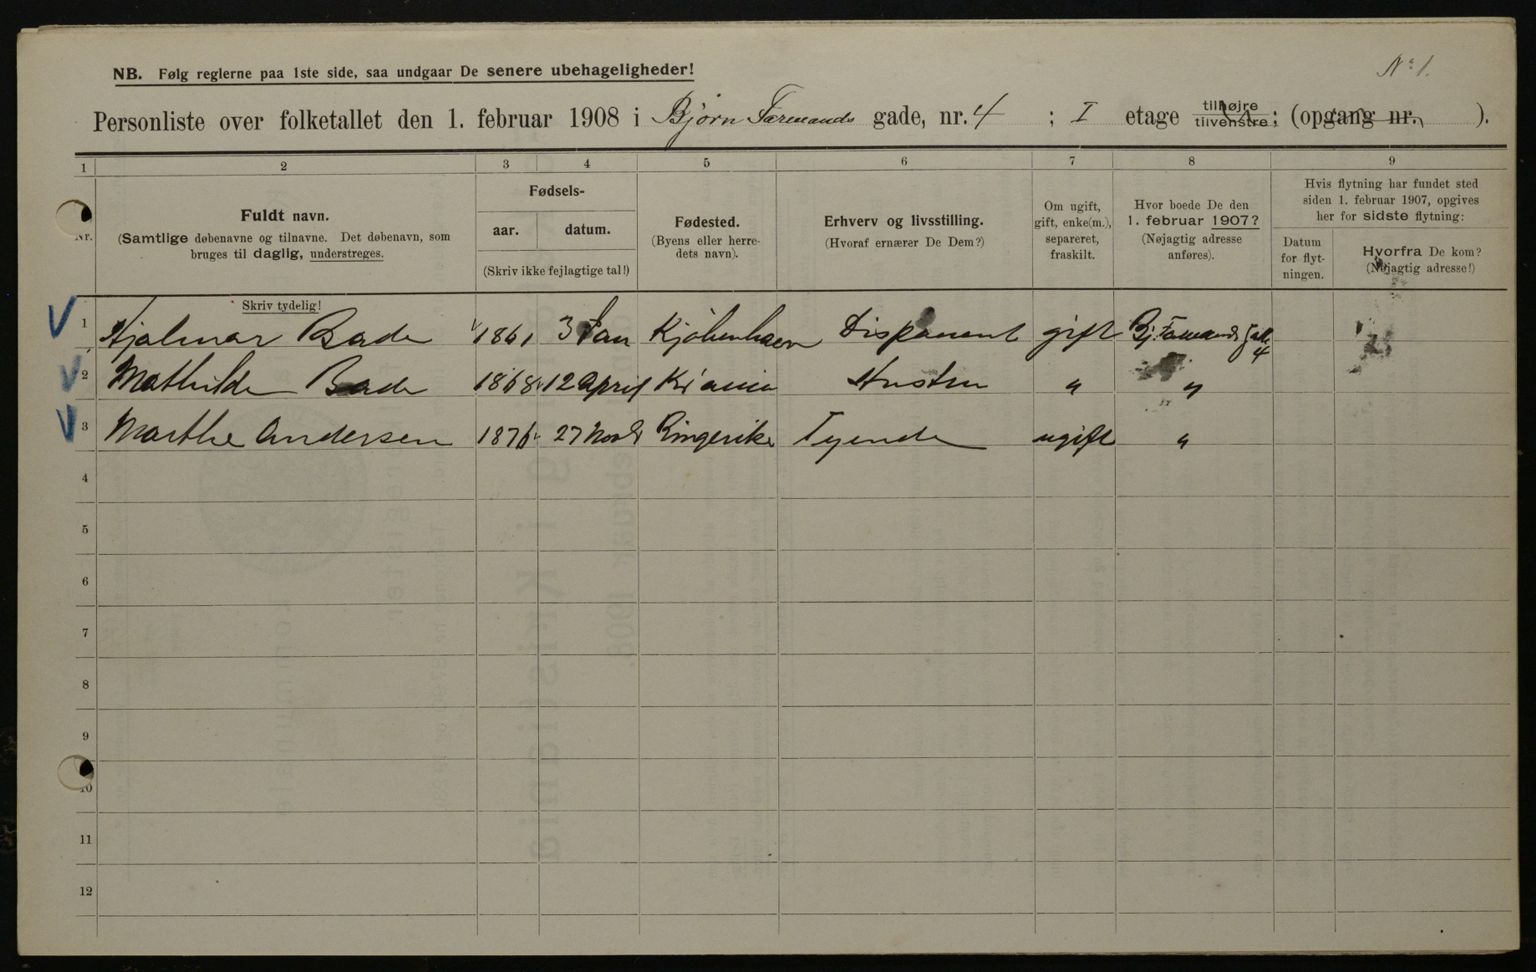 Nº 1.
NB. Følg reglerne paa 1ste side, saa undgaar De senere ubehageligheder!
Personliste over folketallet den 1. februar 1908 i Bjørn Farmands gade, nr. 4 ; I etage tilhøjre tilvenstre ; (opgang nr. ).
1 2 3 4 5 6 7 8 9
Nr.
Fuldt navn.
(Samtlige døbenavne og tilnavne. Det døbenavn, som
bruges til daglig, understreges.
Skriv tydelig!
Fødsels-
aar. datum.
(Skriv ikke fejlagtige tal!)
Fødested.
(Byens eller herre-
dets navn).
Erhverv og livsstilling.
(Hvoraf ernærer De Dem?)
Om ugift,
gift, enke(m.),
separeret,
fraskilt.
Hvor boede De den
1. februar 1907?
(Nøjagtig adresse
anføres).
Hvis flytning har fundet sted
siden 1. februar 1907, opgives
her for sidste flytning:
Datum
for flyt-
ningen.
Hvorfra De kom?
(Nøjagtig adresse!)
1 Hjalmar Bade 1861 3 Jan Kjøbenhavn Disponent gift Bj. Farmands gade 4
2 Mathilde Bade 1868 12 April Kr ania Hustru " "
3 Marthe Andersen 1876 27 Novbr Ringerike Tyende ugift "
4
5
6
7
8
9
10
11
12